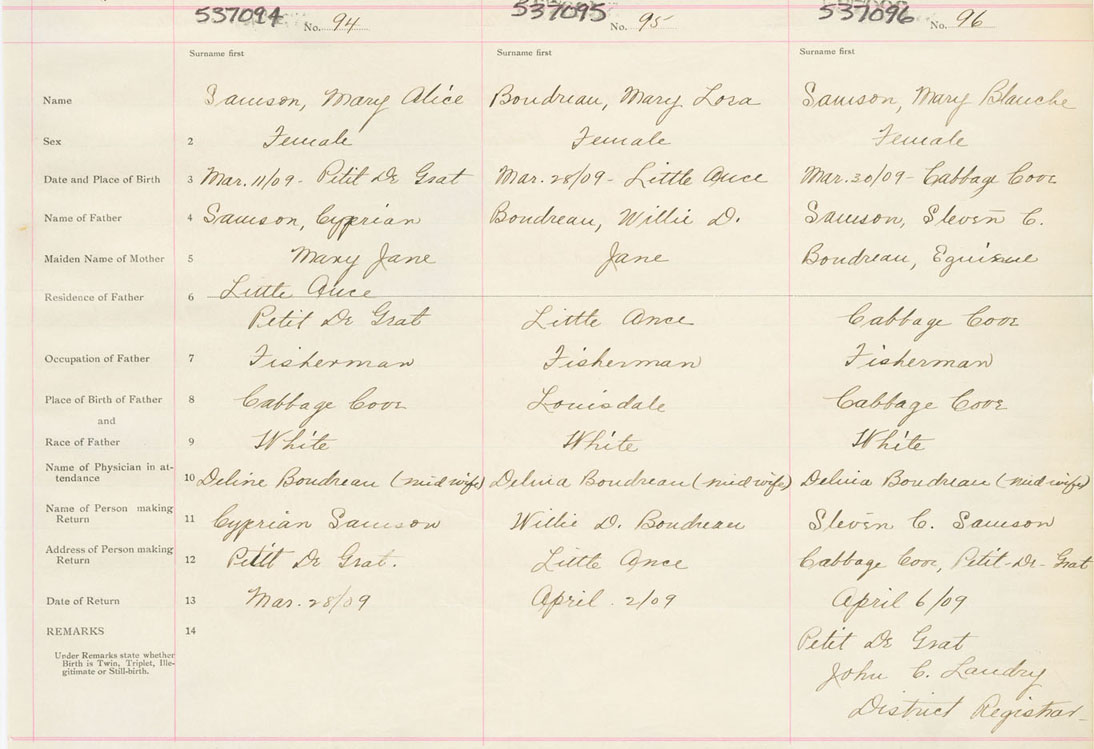 537094 No. 94 537095 No. 95 537096 No. 96
Surname first Surname first Surname first
Name Samson, Mary Alice Boudreau, Mary Lora Samson, Mary Blanche
Sex 2 Female Female Female
Date and Place of Birth 3 Mar. 11/09 - Petit De Grat Mar. 28/09 - Little Ance Mar. 30/09 - Cabbage Cove
Name of Father 4 Samson, Cyprian Boudreau, Willie D. Samson, Steven C.
Maiden Name of Mother 5 Mary Jane Jane Boudreau,
Little Ance
Residence of Father 6
Petit De Grat Little Ance Cabbage Cove
Occupation of Father 7 Fisherman Fisherman Fisherman
Place of Birth of Father 8 Cabbage Cove Louisdale Cabbage Cove
and
Race of Father 9 White White White
Name of Physician in at-
tendance 10 Deline Boudreau (midwife) Delina Boudreau (midwife) Delina Boudreau (midwife)
Name of Person making
Return 11 Cyprian Samson Willie D. Boudreau Steven C. Samson
Address of Person making
Return 12 Petit De Grat. Little Ance Cabbage Cove, Petit-De-Grat
Date of Return 13 Mar. 28/09 April. 2/09 April 6/09
REMARKS 14
Petit De Grat
Under Remarks state whether
Birth is Twin, Triplet, Ille-
gitimate or Still-birth.
John C. Landry
District Registrar